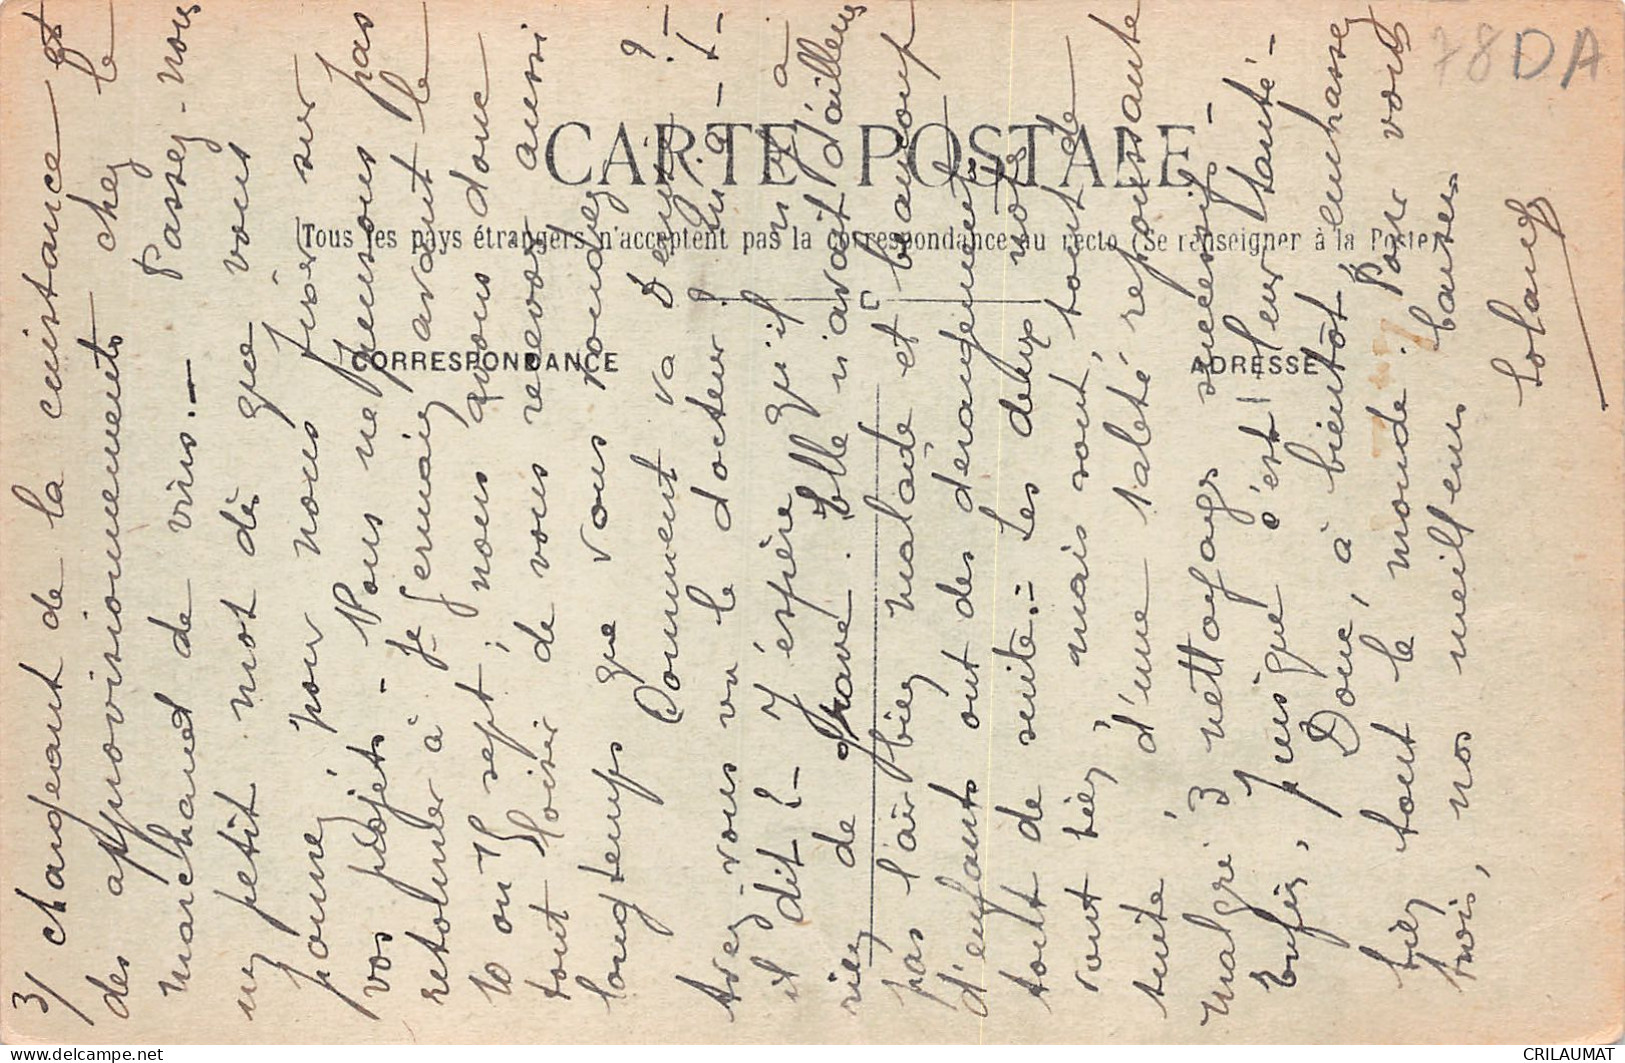 CARTE POSTALE
Tous les pays étrangers n'acceptent pas la correspondance au recto (Se renseigner à la Poste)
CORRESPONDANCE
ADRESSE
78 DA
3/ changeant de la cuistance et
des approvisionnements chez le
marchand de vins. — Passez-nous
un petit mot dès que vous
pour nous fixer sur
vos projets — Nous ne pensons pas
retourner à St Germain avant le
10 ou 15 sept ; nous avons donc
tout loisir de vous revoir aussi
longtemps que vous voudrez
Comment va Denise ?
-vous vu le docteur ! Qu'a-t-
il dit ? — J'espère qu'il n'y a
rien de grave. Elle n'avait d'ailleurs
pas l'air bien malade et beaucoup
d'enfants ont des dérangements
tout de suite. — Les deux nôtres
vont bien, mais sont, tout de
suite, d'une saleté repoussante
malgré 3 nettoyages successifs —
Enfin, puisque c'est leur santé —
Donc, à bientôt,
bien tout le monde. Pour vous
trois, nos meilleurs baisers
Solange
DELCAMPE.NET
CRILAUMAT